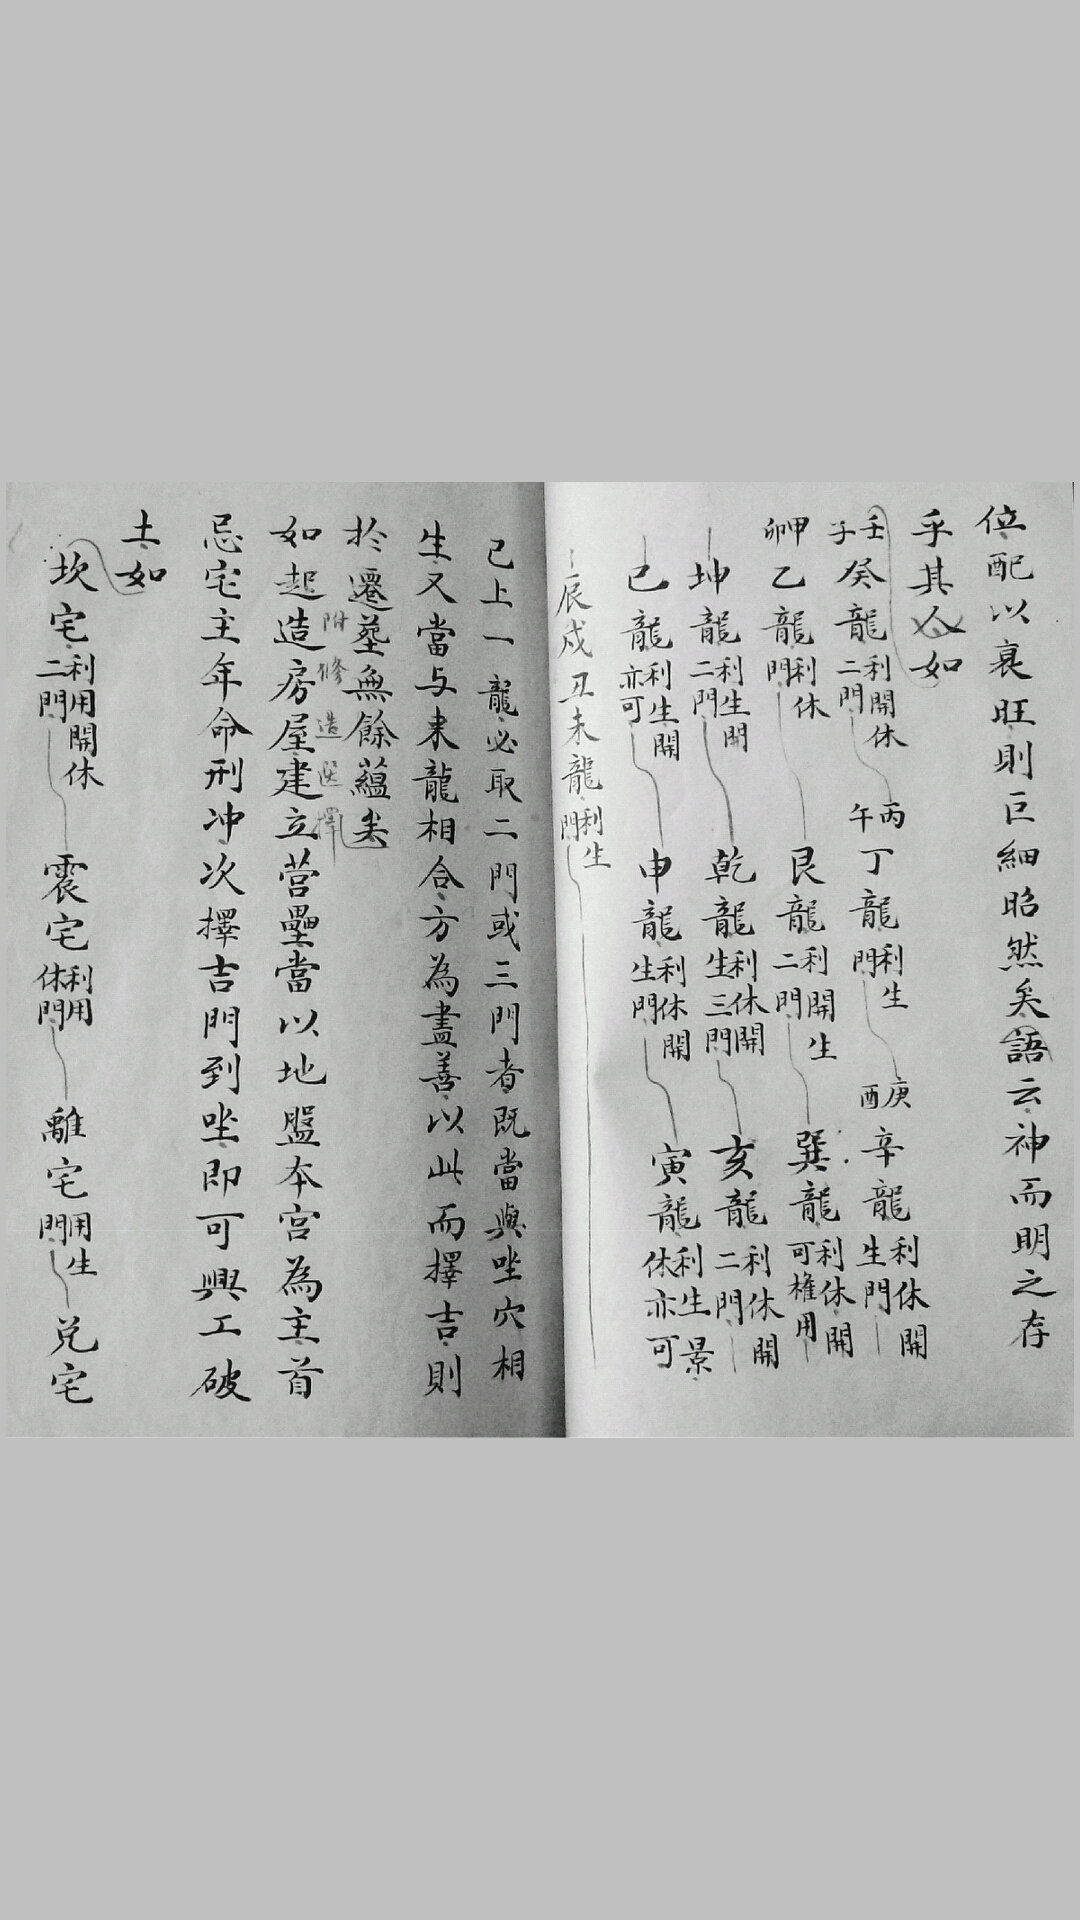 位配以衰旺則巨細昭然矣語云神而明之存
乎其人如
壬子癸龍利開休二門 丙午丁龍利生門 庚酉辛龍利休開生門
甲卯乙龍利休門 艮龍利開生二門 巽龍利休開可權用
坤龍利生開二門 乾龍利休開生三門 亥龍利休開二門
巳龍利生開亦可 申龍利休開生門 寅龍利生景休亦可
辰戍丑未龍利生門
已上一龍必取二門或三門者既當與坐穴相
生又當与来龍相合方為盡善以此而擇吉則
於遷塟無餘蘊矣
附修造選擇
如起造房屋建立营壘當以地盤本宫為主首
忌宅主年命刑冲次擇吉門到坐即可興工破
土如
坎宅利用開休二門 震宅利用休門 離宅用生門 兑宅